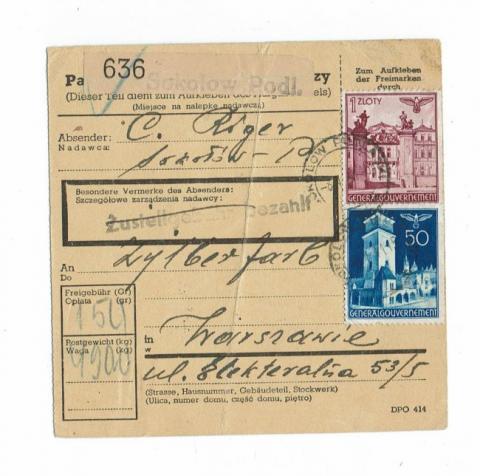 636
Sokołow Podl.
Pa zy
(Dieser Teil dient zum Aufkleben des els)
(Miejsce na nalepkę nadawczą)
Zum Aufkleben
der Freimarken
durch
Absender:
Nadawca:
C. Ryger
Sokołów-P
Besondere Vermerke des Absenders:
Szczegółowe zarządzenia nadawcy:
Zustellgebühr bezahlt
An
Do
Zylberfarb
Freigebühr (Gr)
Opłata (gr)
150
Postgewicht (kg)
Waga (kg)
in
w
Warszawie
ul. Elektoralna 53/5
(Strasse, Hausnummer, Gebäudeteil, Stockwerk)
(Ulica, numer domu, część domu, piętro)
DPO 414
1 ZŁOTY
GENERALGOUVERNEMENT
50
GENERALGOUVERNEMENT